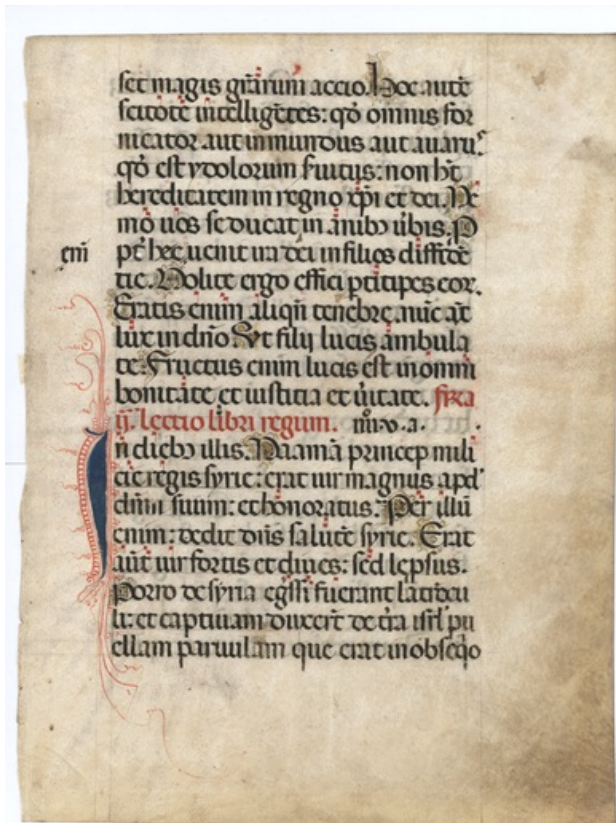 set magis gr̄arum accio. Hoc autē
scitote intelligētes: qđ omnis for
nicator aut inmundus aut auarus
qđ est ydolorum seruitus: non ht̄
hereditatem in regno xp̄i et dei. Ne
mo uos seducat in anibꝫ uerbis. P
pt̄ hec uenit ira dei in filios diffidē
enī
tie. Nolite ergo effici pticipes eor.
Eratis enim aliqn̄ tenebre. nūc āt
lux in dn̄o. Vt filii lucis ambula
te. Fructus enim lucis est in omni
bonitate et iustitia et ūitate. fīa
ij. lectio libri regum. iiijo. v. a.
n diebꝫ illis. Naamā princep mili
cie regis syrie: erat uir magnus apd'
dn̄m suum: et honoratus. Per illū
enim: dedit dn̄s salutē syrie. Erat
aūt uir fortis et diues: sed lepsus.
Porro de syria egssi fuerant latrūcu
li: et captiuam duxerт̄ de tr̄a isrl̄ pu
ellam paruulam que erat in obseqio